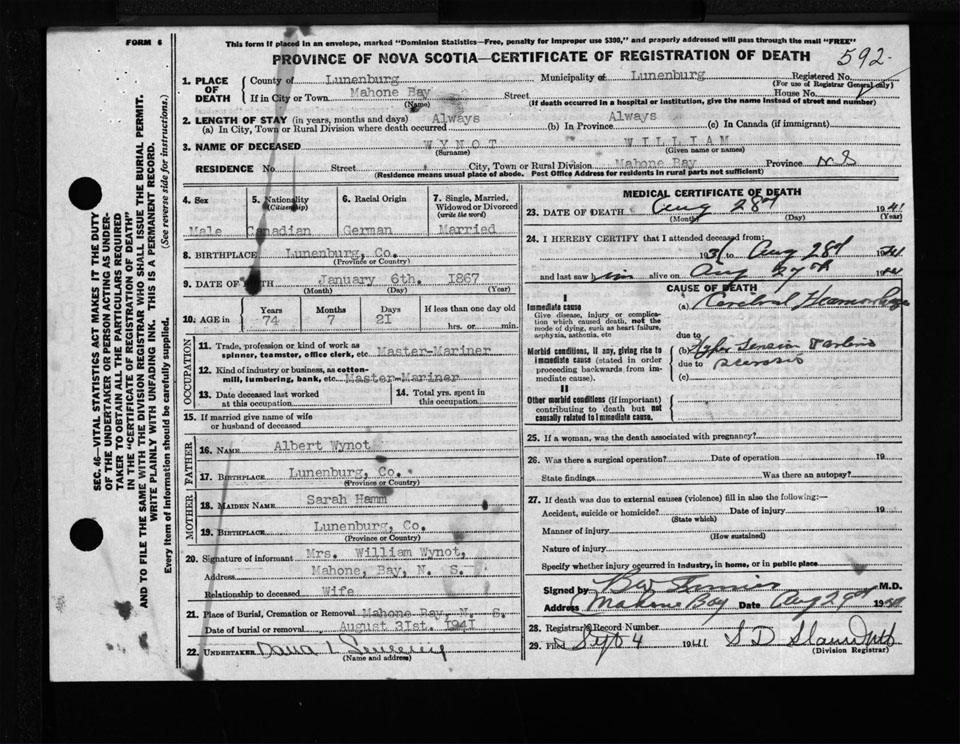 FORM 6
This form if placed in an envelope, marked "Dominion Statistics—Free, penalty for improper use $300," and properly addressed will pass through the mail "FREE"
PROVINCE OF NOVA SCOTIA—CERTIFICATE OF REGISTRATION OF DEATH
592
1. PLACE OF DEATH
County of Lunenburg Municipality of Lunenburg Registered No.
(For use of Registrar General only)
If in City or Town Mahone Bay Street House No.
(Name) (If death occurred in a hospital or institution, give the name instead of street and number)
2. LENGTH OF STAY (in years, months and days) Always Always
(a) In City, Town or Rural Division where death occurred (b) In Province (c) In Canada (if immigrant)
3. NAME OF DECEASED WYNOT WILLIAM
(Surname) (Given name or names)
RESIDENCE No. Street City, Town or Rural Division Mahone Bay Province N S
(Residence means usual place of abode. Post Office Address for residents in rural parts not sufficient)
4. Sex
Male
5. Nationality
(Citizenship)
Canadian
6. Racial Origin
German
7. Single, Married,
Widowed or Divorced
(write the word)
Married
8. BIRTHPLACE Lunenburg, Co.
(Province or Country)
9. DATE OF BIRTH January 6th. 1867
(Month) (Day) (Year)
10. AGE in
Years Months Days If less than one day old
74 7 21 hrs. or min.
OCCUPATION
11. Trade, profession or kind of work as
spinner, teamster, office clerk, etc. Master-Mariner
12. Kind of industry or business, as cotton-
mill, lumbering, bank, etc. Master-Mariner
13. Date deceased last worked
at this occupation
14. Total yrs. spent in
this occupation
15. If married give name of wife
or husband of deceased
FATHER
16. NAME Albert Wynot
17. BIRTHPLACE Lunenburg, Co.
(Province or Country)
MOTHER
18. MAIDEN NAME Sarah Hamm
19. BIRTHPLACE Lunenburg, Co.
(Province or Country)
20. Signature of informant Mrs. William Wynot,
Address Mahone, Bay, N. S.
Relationship to deceased Wife
21. Place of Burial, Cremation or Removal Mahone Bay, N. S.
Date of burial or removal August 31st. 1941
22. UNDERTAKER
(Name and address)
MEDICAL CERTIFICATE OF DEATH
23. DATE OF DEATH Aug 28th 1941
(Month) (Day) (Year)
24. I HEREBY CERTIFY that I attended deceased from:
to Aug 28th 1941
and last saw him alive on Aug 27th 1941
CAUSE OF DEATH
I
Immediate cause (a) Cerebral Hemorrhage
Give disease, injury, or complica-
tion which caused death, not the
mode of dying, such as heart failure,
asphyxia, asthenia, etc
due to
Morbid conditions, if any, giving rise to
immediate cause (stated in order
proceeding backwards from im-
mediate cause).
(b)
due to
(c)
II
Other morbid conditions (if important)
contributing to death but not
causally related to immediate cause.
25. If a woman, was the death associated with pregnancy?
26. Was there a surgical operation? Date of operation 19
State findings Was there an autopsy?
27. If death was due to external causes (violence) fill in also the following:—
Accident, suicide or homicide? Date of injury 19
(State which)
Manner of injury
(How sustained)
Nature of injury
Specify whether injury occurred in industry, in home, or in public place
Signed by M.D.
Address Mahone Bay Date Aug 29th
28. Registrar's Record Number
29. Filed Sept 4 1941
(Division Registrar)
SEC. 46—VITAL STATISTICS ACT MAKES IT THE DUTY
OF THE UNDERTAKER OR PERSON ACTING AS UNDER-
TAKER TO OBTAIN ALL THE PARTICULARS REQUIRED
IN THE "CERTIFICATE OF REGISTRATION OF DEATH"
AND TO FILE THE SAME WITH THE DIVISION REGISTRAR WHO SHALL ISSUE THE BURIAL PERMIT.
WRITE PLAINLY WITH UNFADING INK. THIS IS A PERMANENT RECORD.
Every item of information should be carefully supplied. (See reverse side for instructions.)